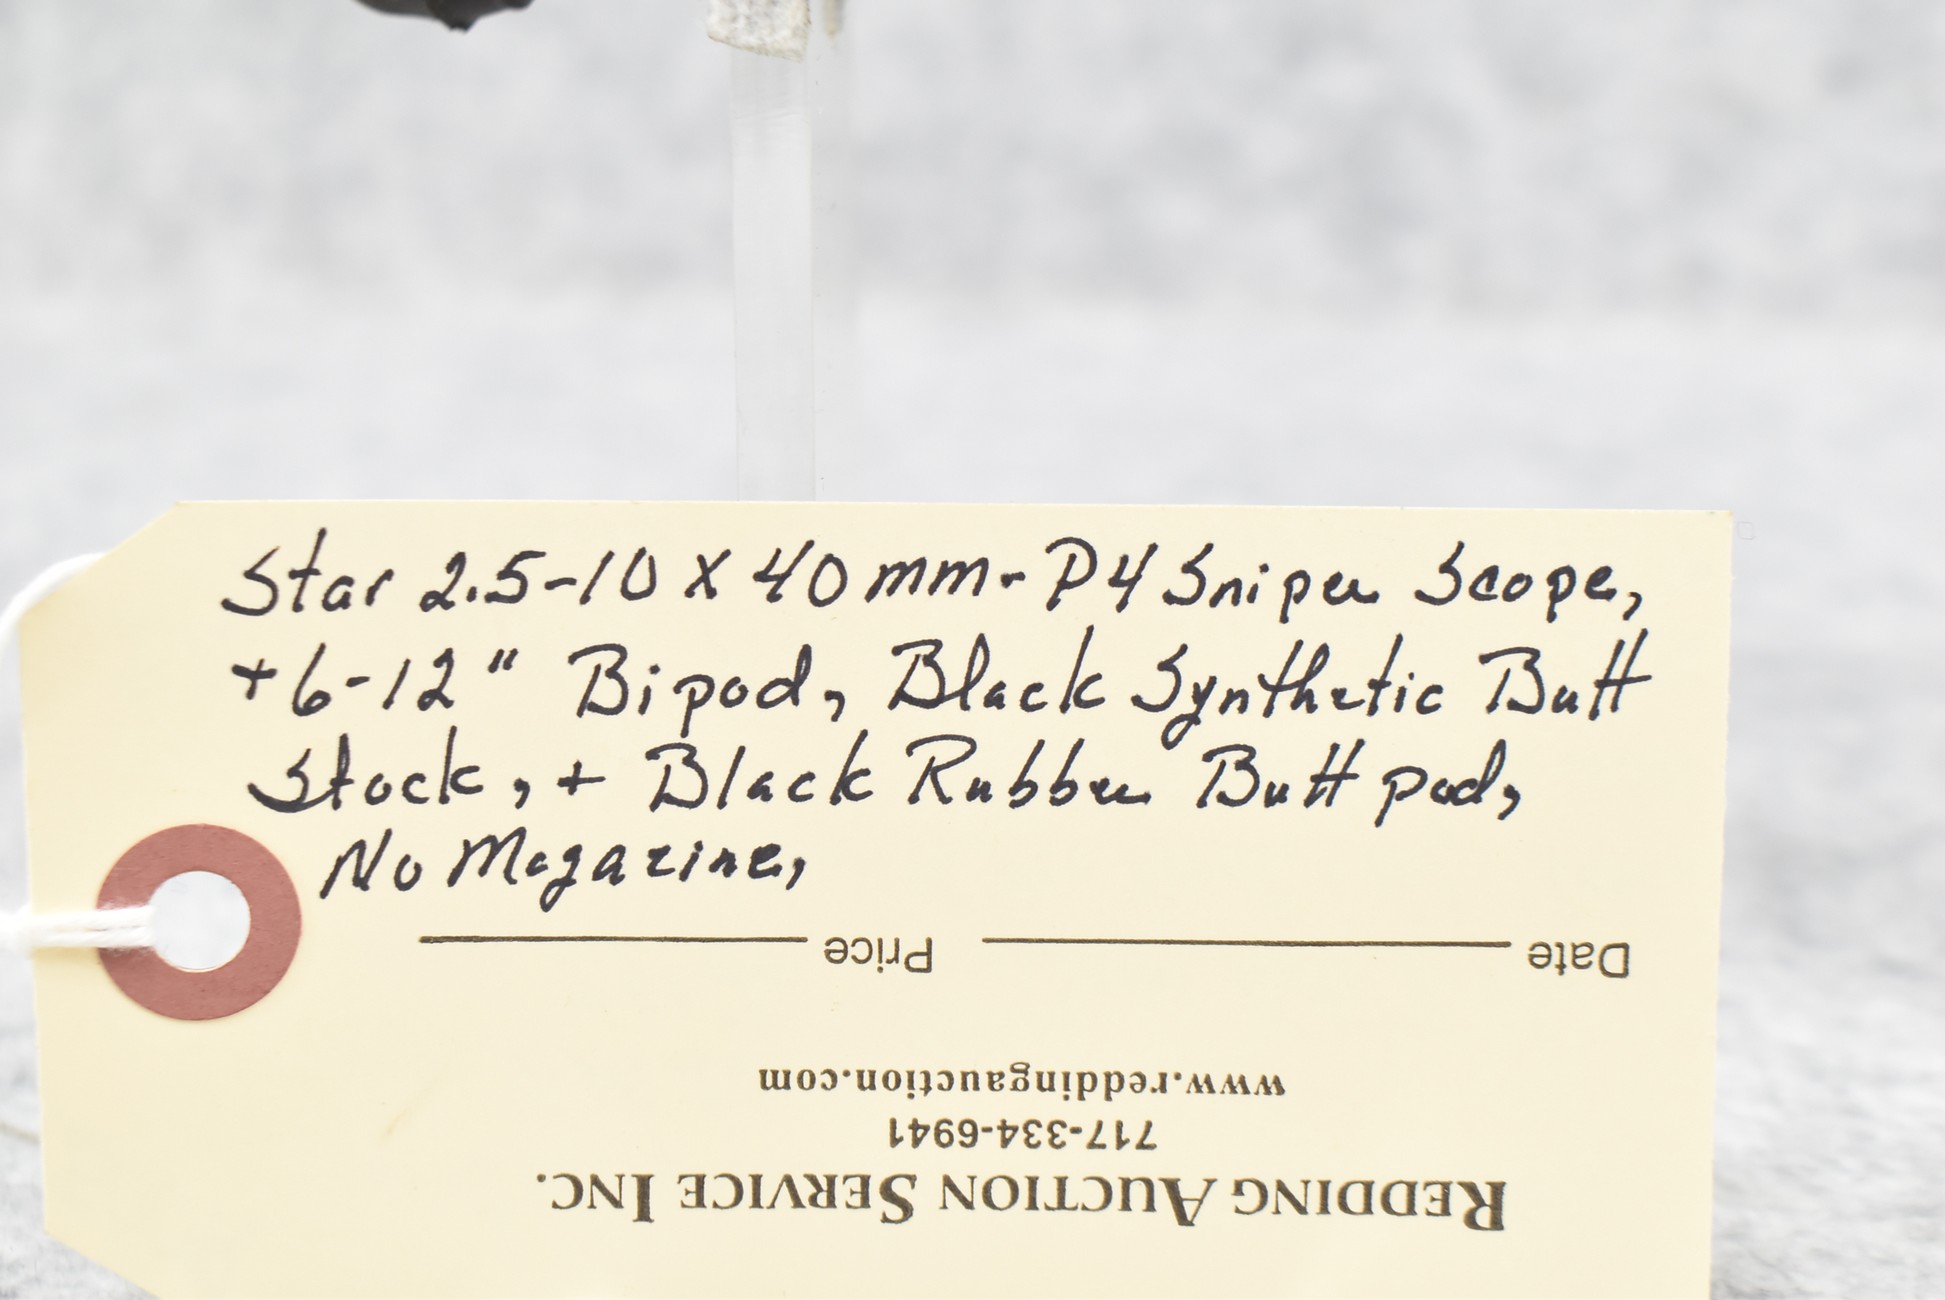 Star 2.5-10 X 40mm-P4 Sniper Scope,
+ 6-12" Bipod, Black Synthetic Butt
Stock, + Black Rubber Butt pad,
No Magazine,
Date Price
www.reddingauction.com
717-334-6941
REDDING AUCTION SERVICE INC.